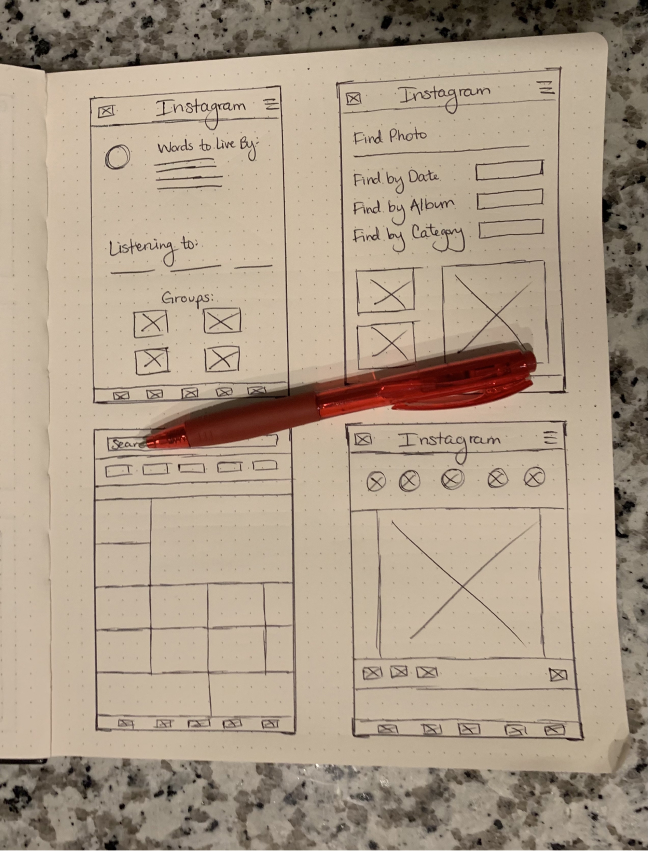 Instagram
Words to Live By:
Listening to:
Groups:
Instagram
Find Photo
Find by Date
Find by Album
Find by Category
Instagram